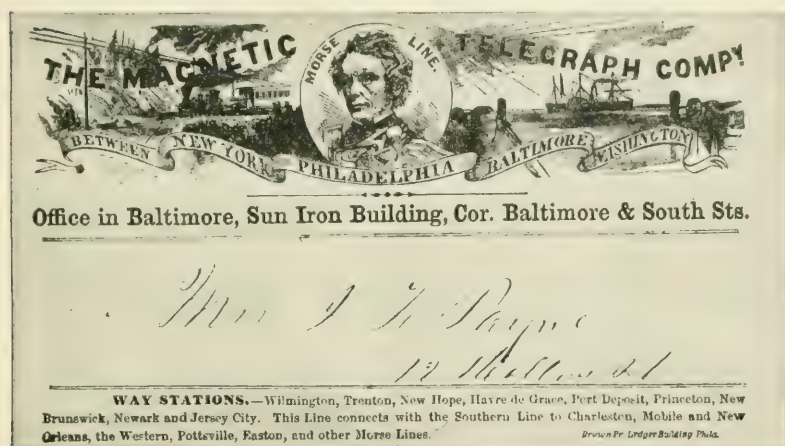 THE MAGNETIC TELEGRAPH COMPY.
MORSE LINE.
BETWEEN NEW YORK PHILADELPHIA BALTIMORE WASHINGTON
Office in Baltimore, Sun Iron Building, Cor. Baltimore & South Sts.
Payne
WAY STATIONS.—Wilmington, Trenton, New Hope, Havre de Grace, Port Deposit, Princeton, New
Brunswick, Newark and Jersey City. This Line connects with the Southern Line to Charleston, Mobile and New
Orleans, the Western, Pottsville, Easton, and other Morse Lines.
Brown Pr. Ledger Building Phila.